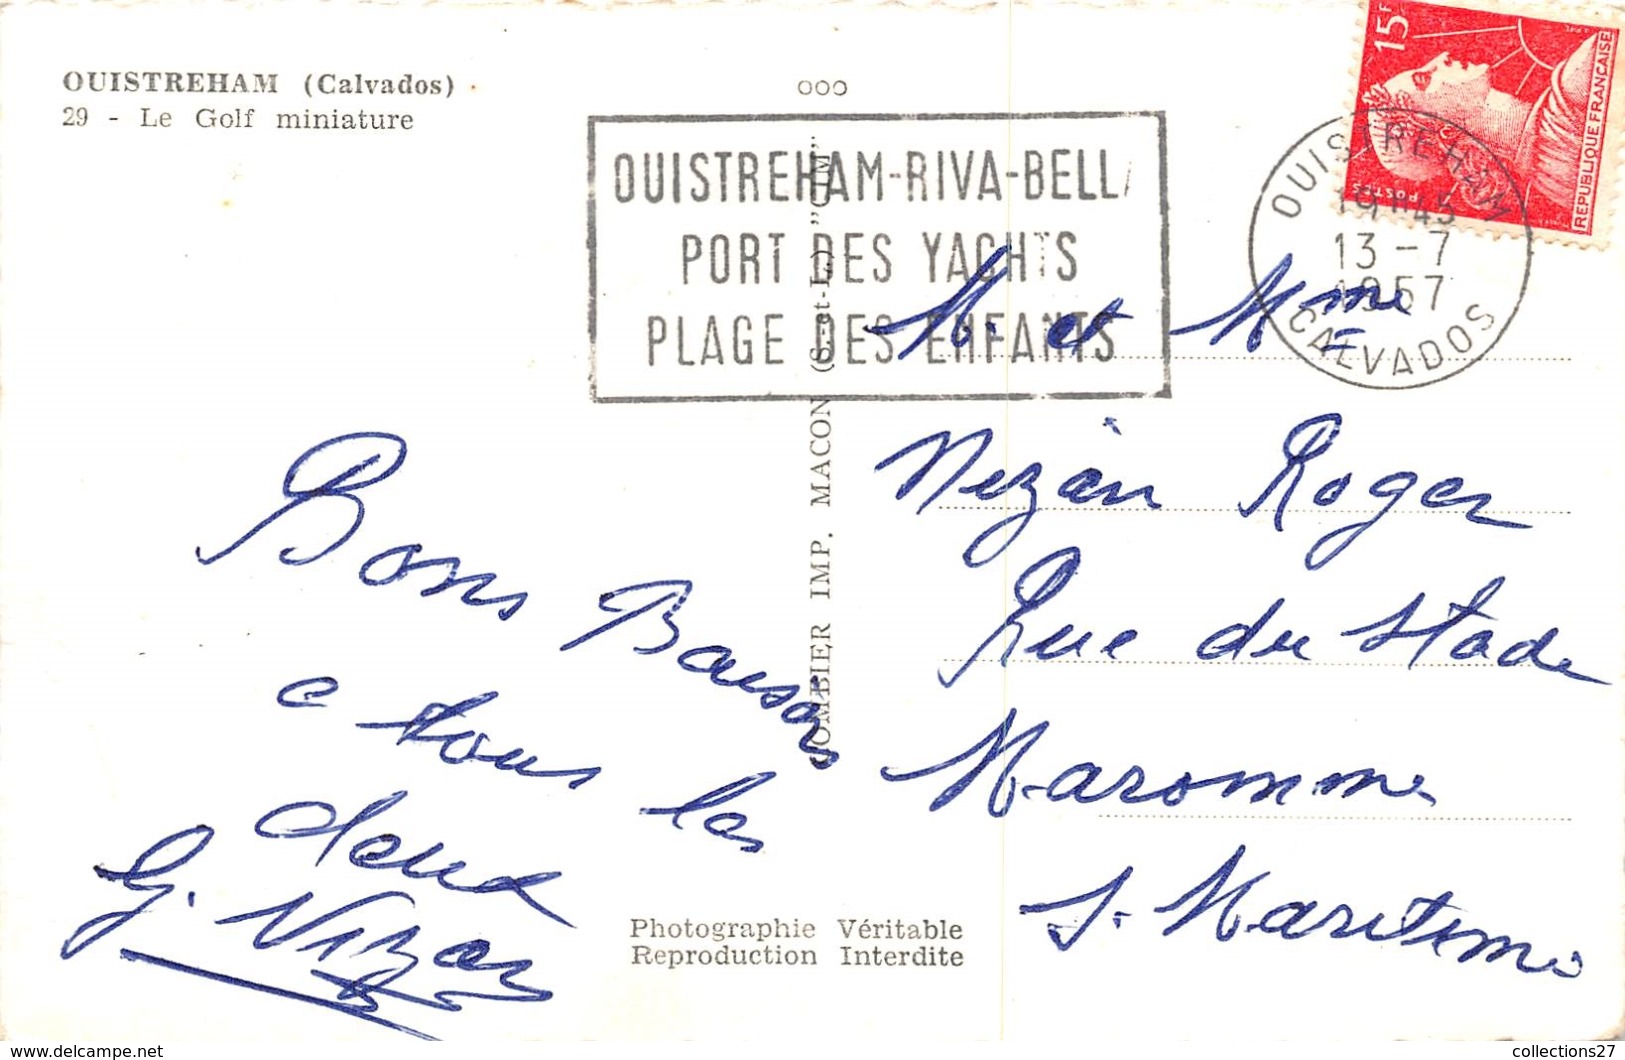 OUISTREHAM (Calvados)
29 - Le Golf miniature
ooo
OUISTREHAM-RIVA-BELL
PORT DES YACHTS
PLAGE DES ENFANTS
15F
POSTES
REPUBLIQUE FRANÇAISE
OUISTREHAM
19H45
13-7
1957
CALVADOS
COMBIER IMP. MACON (S.-et-L.) "CIM"
Bons Baisers
a tous les
deux
G.
M. et Mme
Roger
Rue du Stade
Maromme
S. Maritime
Photographie Véritable
Reproduction Interdite
collections27
delcampe.net